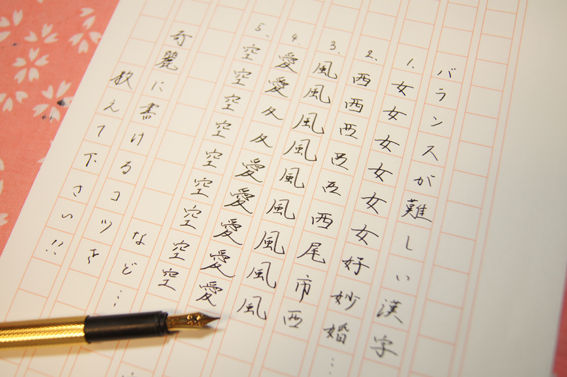 バランスが難しい漢字
1. 女女女女女女好妙婚…
2. 西西西西尾市西
3. 風風風風風風風風風
4. 愛愛久久愛愛愛愛愛
5. 空空空空空空空空空
など…
奇麗に書けるコツを
教えて下さい!!